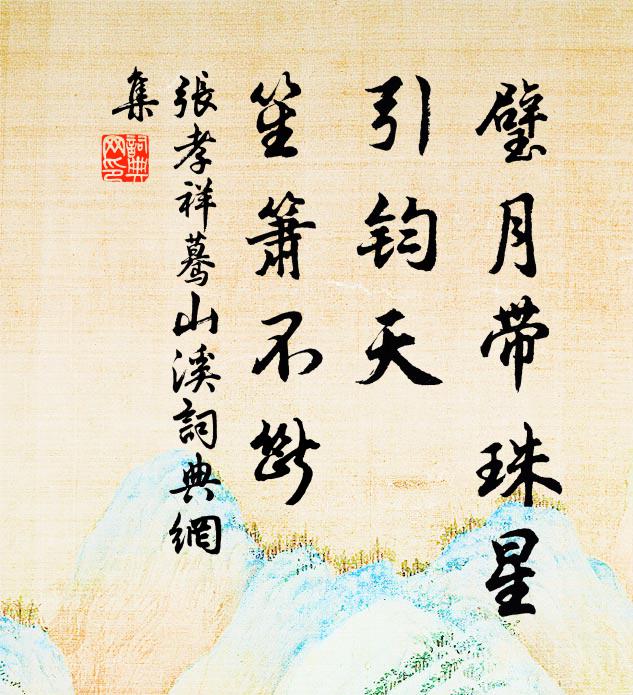 璧月带珠星
引钧天
笙箫不断
張孝祥驀山溪詞典網
集
詞典
网印